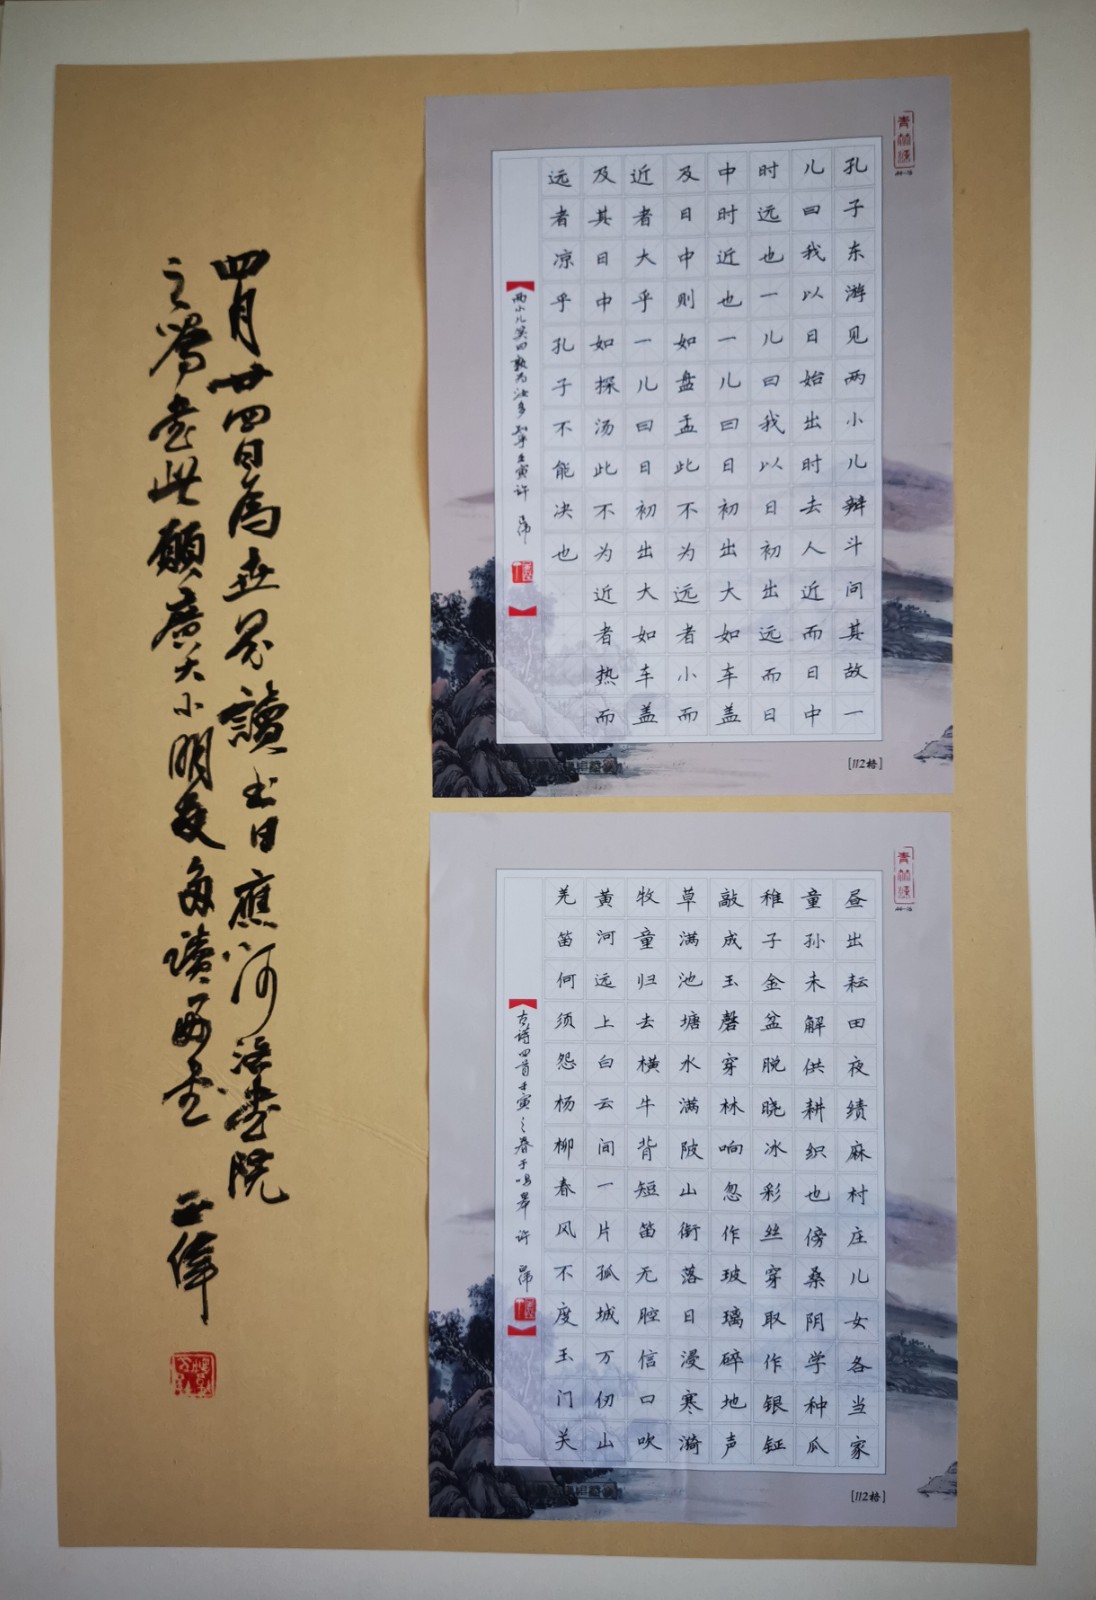 青竹溪
孔子东游见两小儿辩斗问其故一
儿曰我以日始出时去人近而日中
时远也一儿曰我以日初出远而日
中时近也一儿曰日初出大如车盖
及日中则如盘盂此不为远者小而
近者大乎一儿曰日初出大如车盖
及其日中如探汤此不为近者热而
远者凉乎孔子不能决也
两小儿笑曰孰为汝多知乎壬寅许正伟
[112格]
昼出耘田夜绩麻村庄儿女各当家
童孙未解供耕织也傍桑阴学种瓜
稚子金盆脱晓冰彩丝穿取作银钲
敲成玉磬穿林响忽作玻璃碎地声
草满池塘水满陂山衔落日浸寒漪
牧童归去横牛背短笛无腔信口吹
黄河远上白云间一片孤城万仞山
羌笛何须怨杨柳春风不度玉门关
古诗四首壬寅之春于鸣皋许正伟
[112格]
四月廿四日為世界讀书日應河洛書院
之嘱書此願廣大小朋友多讀好書 正偉